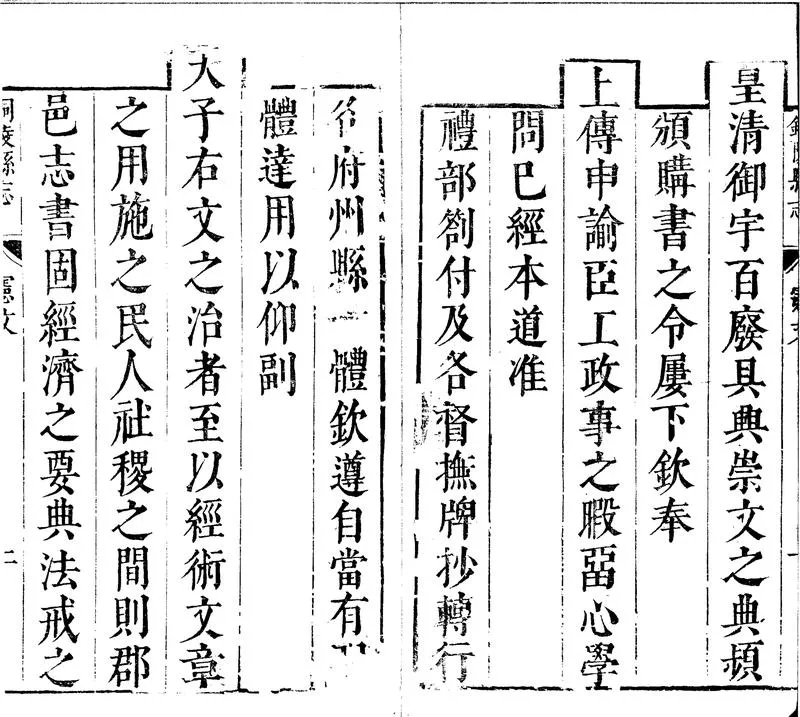 皇清御宇百廢具典崇文之典頻
頒購書之令屢下欽奉
上傳申諭臣工政事之暇畱心學
問已經本道准
禮部劄付及各督撫牌抄轉行
各府州縣一體欽遵自當有
體達用以仰副
天子右文之治者至以經術文章
之用施之民人社稷之間則郡
邑志書固經濟之要典法戒之
銅陵縣志
憲文
二